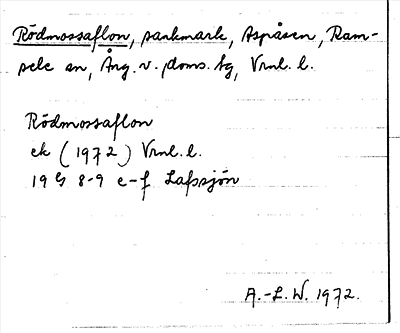 Rödmossaflon, sankmark, Aspåsen, Ram-
sele sn, Ång. v. doms. tg, Vrnl. l.
Rödmossaflon
ek (1972) Vrnl. l.
19 G 8-9 e-f Lafssjön
A.-L. W. 1972.